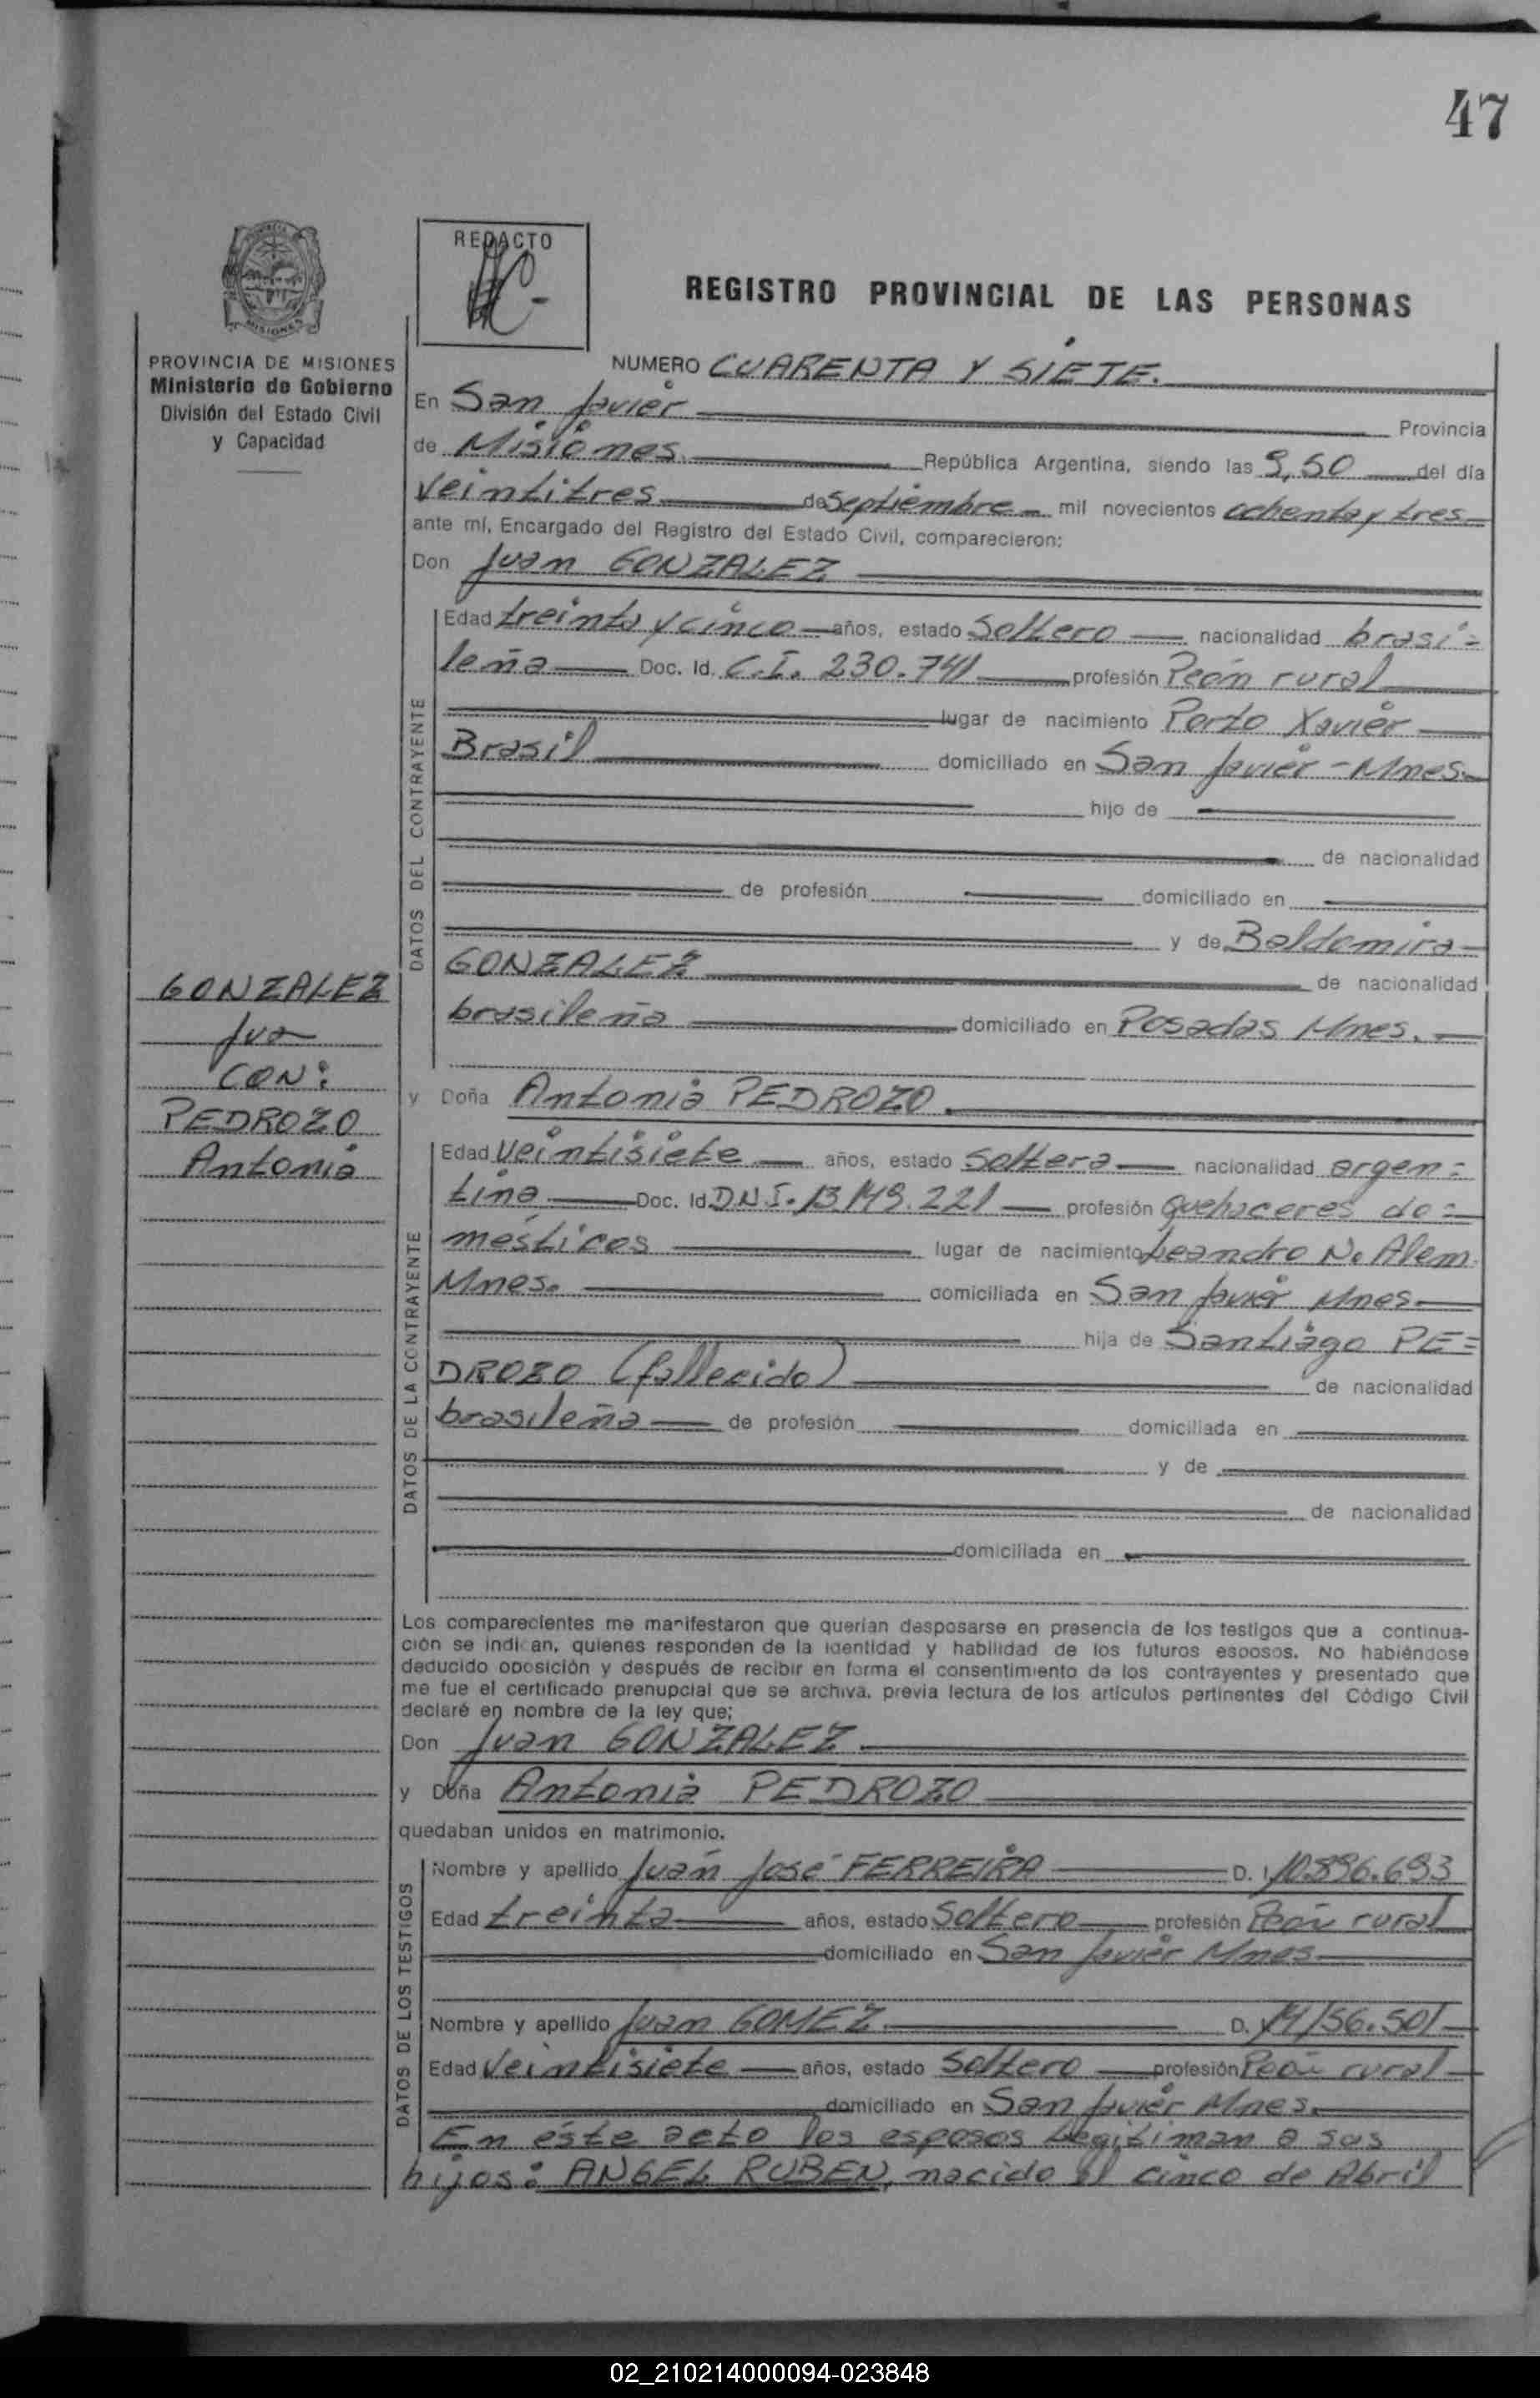 47
REDACTO
REGISTRO PROVINCIAL DE LAS PERSONAS
MISIONES
PROVINCIA DE MISIONES
Ministerio de Gobierno
División del Estado Civil
y Capacidad
NUMERO CUARENTA Y SIETE.
En San Javier Provincia
de Misiones República Argentina, siendo las 9,50 del día
veintitres de Septiembre mil novecientos ochenta y tres
ante mí, Encargado del Registro del Estado Civil, comparecieron:
Don Juan GONZALEZ
DATOS DEL CONTRAYENTE
Edad treinta y cinco años, estado Soltero nacionalidad brasi=
leña Doc. Id. C.I. 230.741 profesión Peón rural
lugar de nacimiento Porto Xavier
Brasil domiciliado en San Javier - Mnes.
hijo de
de nacionalidad
de profesión domiciliado en
y de Baldomira
GONZALEZ de nacionalidad
brasileña domiciliado en Posadas Mnes.
GONZALEZ
Jua
CON:
PEDROZO
Antonia
y Doña Antonia PEDROZO
DATOS DE LA CONTRAYENTE
Edad veintisiete años, estado Soltera nacionalidad argen=
tina Doc. Id. D.N.I. 13.149.221 profesión quehaceres do=
mésticos lugar de nacimiento Leandro N. Alem
Mnes. domiciliada en San Javier Mnes
hija de Santiago PE=
DROZO (fallecido) de nacionalidad
brasileña de profesión domiciliada en
y de
de nacionalidad
domiciliada en
Los comparecientes me manifestaron que querían desposarse en presencia de los testigos que a continua-
ción se indican, quienes responden de la identidad y habilidad de los futuros esposos. No habiéndose
deducido oposición y después de recibir en forma el consentimiento de los contrayentes y presentado que
me fue el certificado prenupcial que se archiva, previa lectura de los artículos pertinentes del Código Civil
declaré en nombre de la ley que;
Don Juan GONZALEZ
y Doña Antonia PEDROZO
quedaban unidos en matrimonio.
DATOS DE LOS TESTIGOS
Nombre y apellido Juan José FERREIRA D. I. 10.896.693
Edad treinta años, estado Soltero profesión Peón rural
domiciliado en San Javier Mnes
Nombre y apellido Juan GOMEZ D. 14.156.501
Edad Veintisiete años, estado Soltero profesión Peón rural
domiciliado en San Javier Mnes.
En éste acto los esposos legitiman a sus
hijos: ANGEL RUBEN, nacido el cinco de Abril
02_210214000094-023848